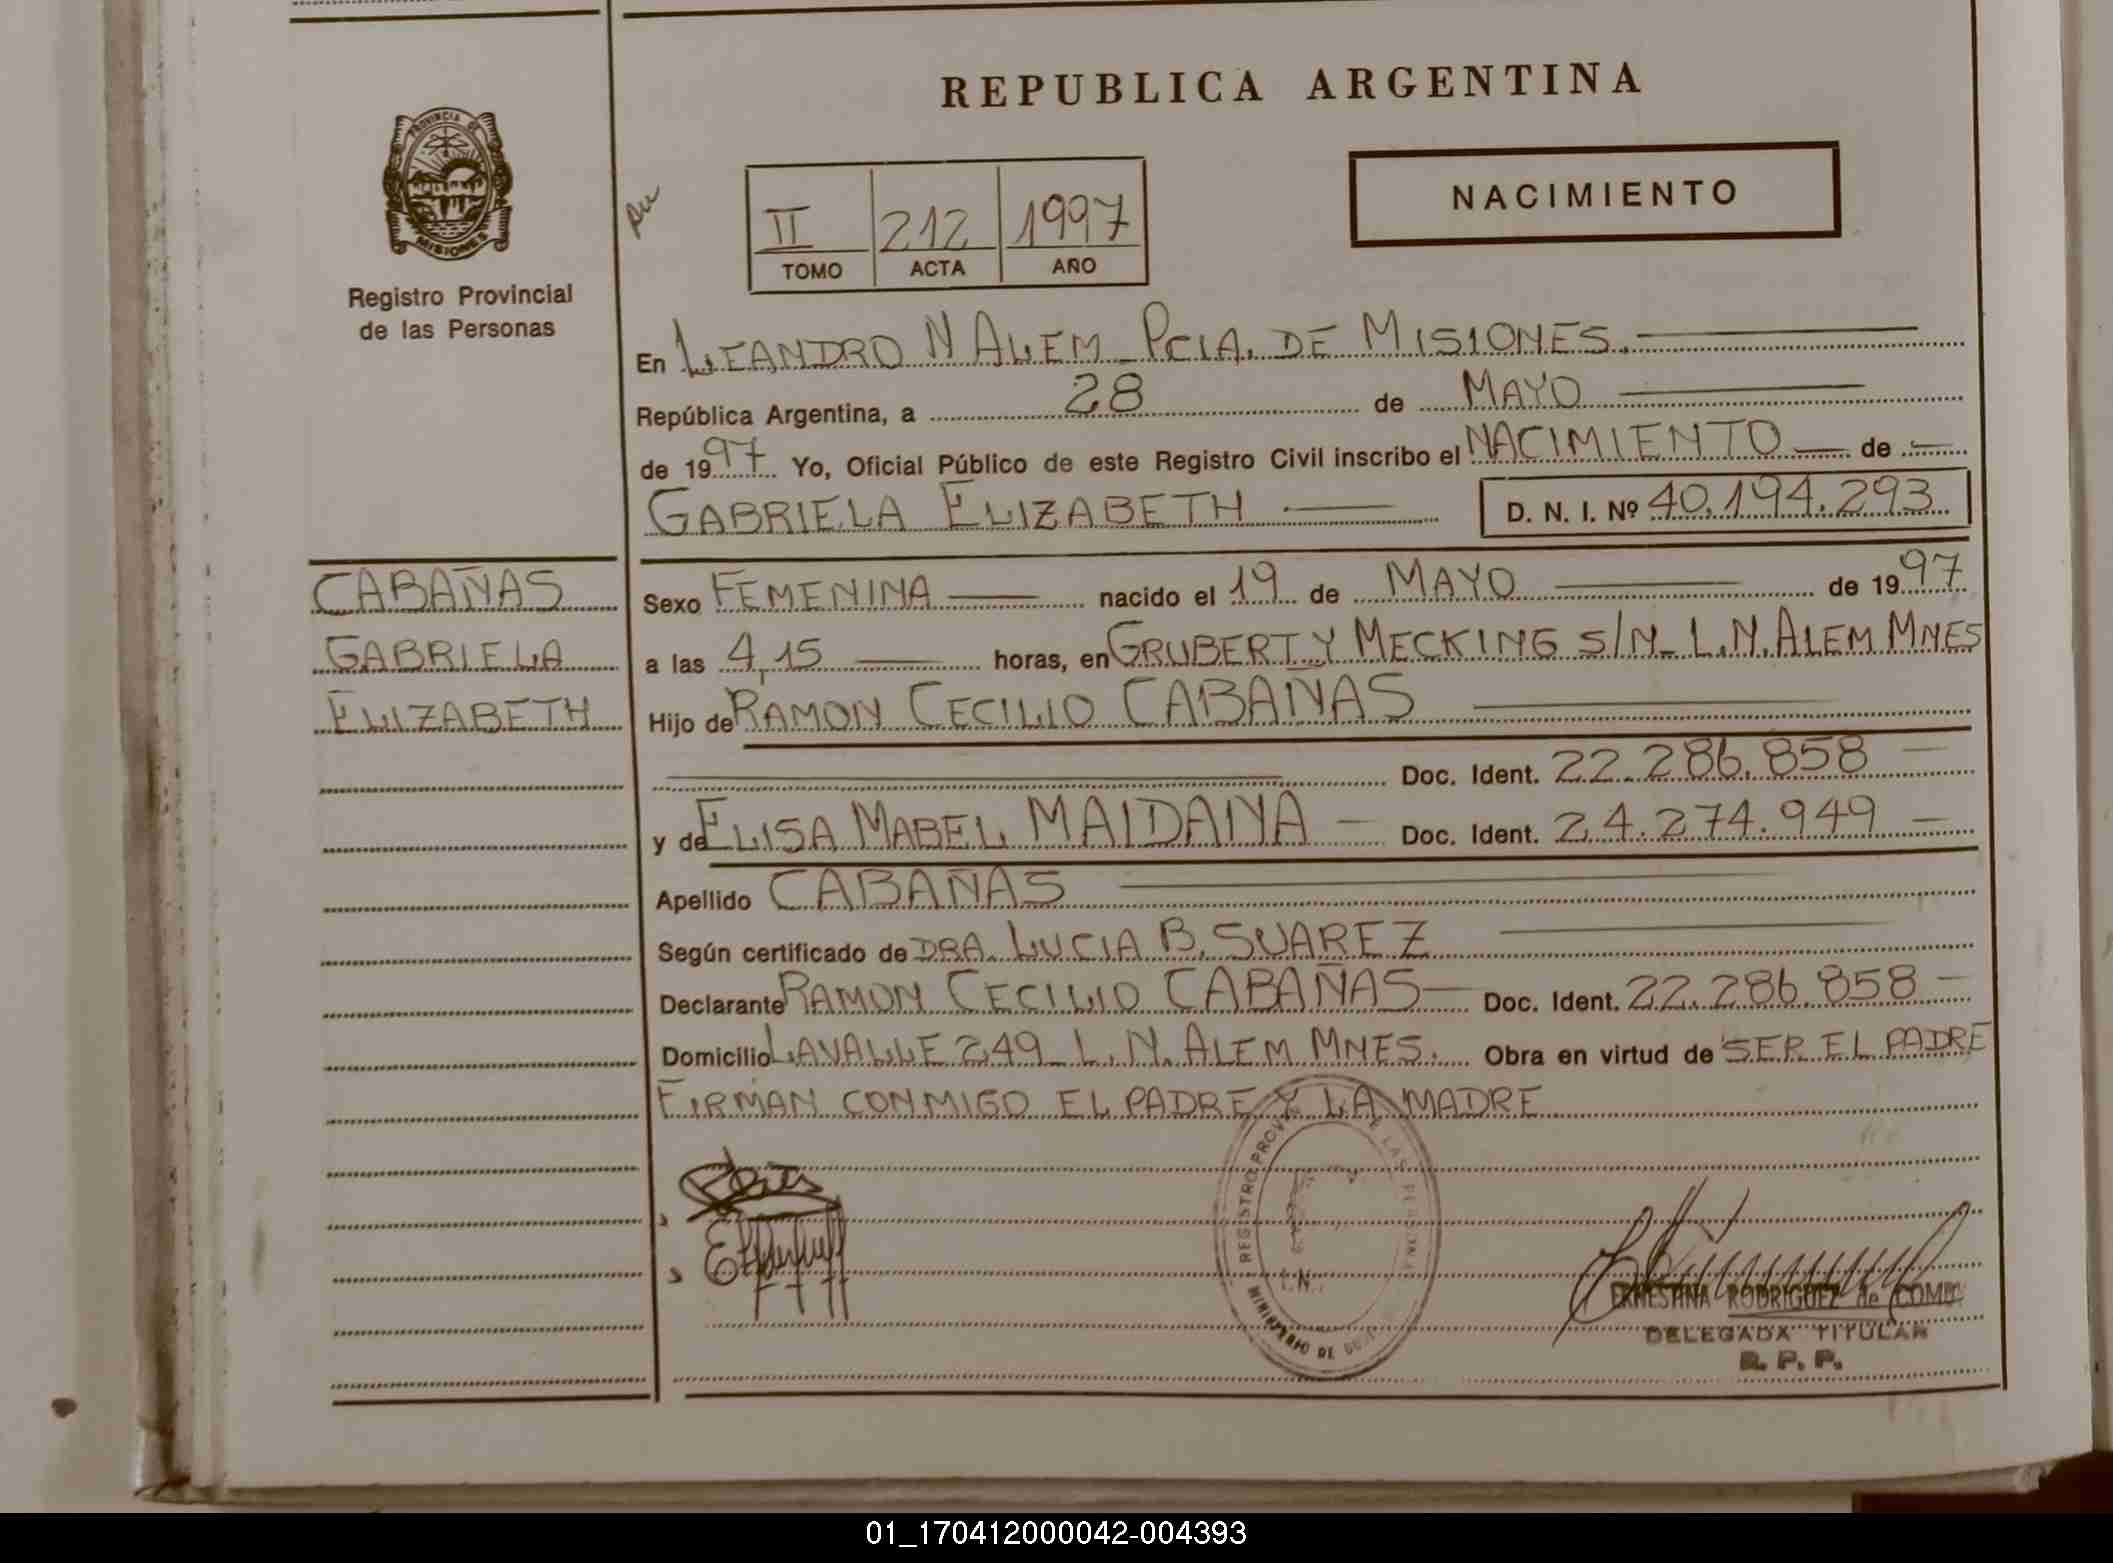 REPUBLICA ARGENTINA
PROVINCIA DE
MISIONES
Registro Provincial
de las Personas
NACIMIENTO
II 212 1997
TOMO ACTA AÑO
En LEANDRO N ALEM_ PCIA. DE MISIONES.
República Argentina, a 28 de MAYO
de 1997 Yo, Oficial Público de este Registro Civil inscribo el NACIMIENTO de
GABRIELA ELIZABETH D. N. I. Nº 40.194.293
CABAÑAS
GABRIELA
ELIZABETH
Sexo FEMENINA nacido el 19 de MAYO de 1997
a las 4,15 horas, en GRUBERT Y MECKING S/N_ L.N. ALEM MNES
Hijo de RAMON CECILIO CABAÑAS
Doc. Ident. 22.286.858
y de ELISA MABEL MAIDANA Doc. Ident. 24.274.949
Apellido CABAÑAS
Según certificado de DRA. LUCIA B. SUAREZ
Declarante RAMON CECILIO CABAÑAS Doc. Ident. 22.286.858
Domicilio LAVALLE 249_ L.N. ALEM MNES. Obra en virtud de SER EL PADRE
FIRMAN CONMIGO EL PADRE Y LA MADRE
REGISTRO PROV DE LAS PERSONAS
MINISTERIO DE
ERNESTINA RODRIGUEZ de
DELEGADA TITULAR
R. P. P.
01_170412000042-004393